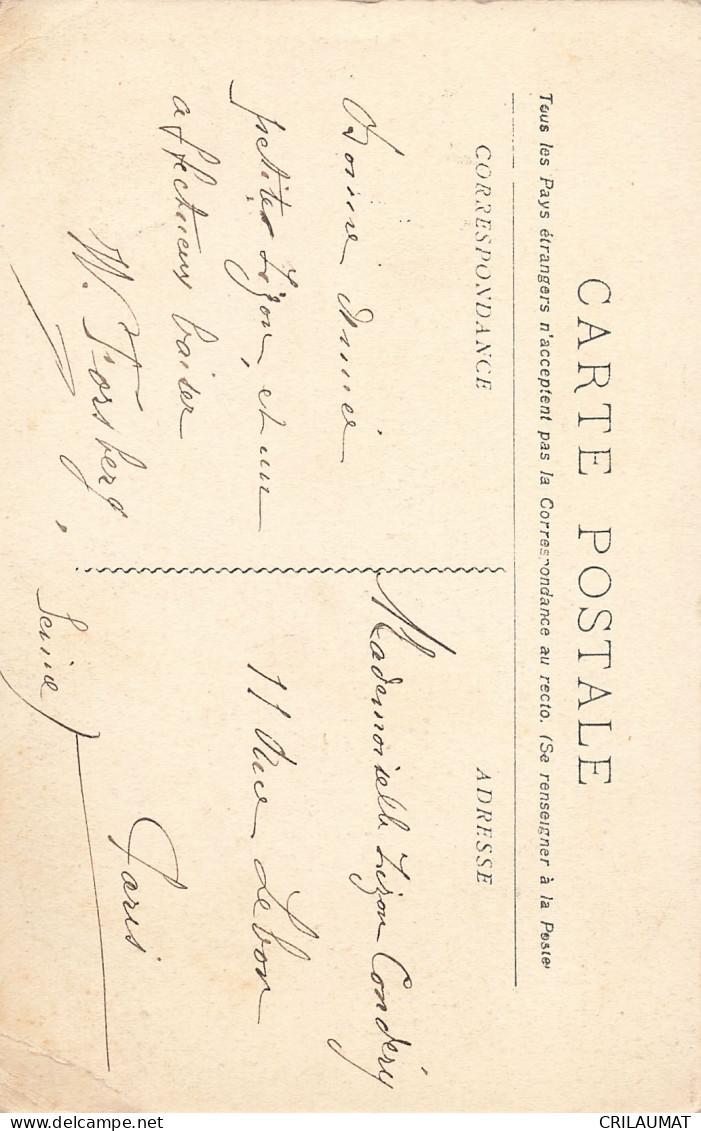 CARTE POSTALE
Tous les Pays étrangers n'acceptent pas la Correspondance au recto. (Se renseigner à la Poste)
CORRESPONDANCE
ADRESSE
Bonne Année
petite Lizon, et un
affectueux baiser
W. Forsberg.
Mademoiselle Lizon Condéry
11 Rue Lebon
Paris
Seine
CRILAUMAT